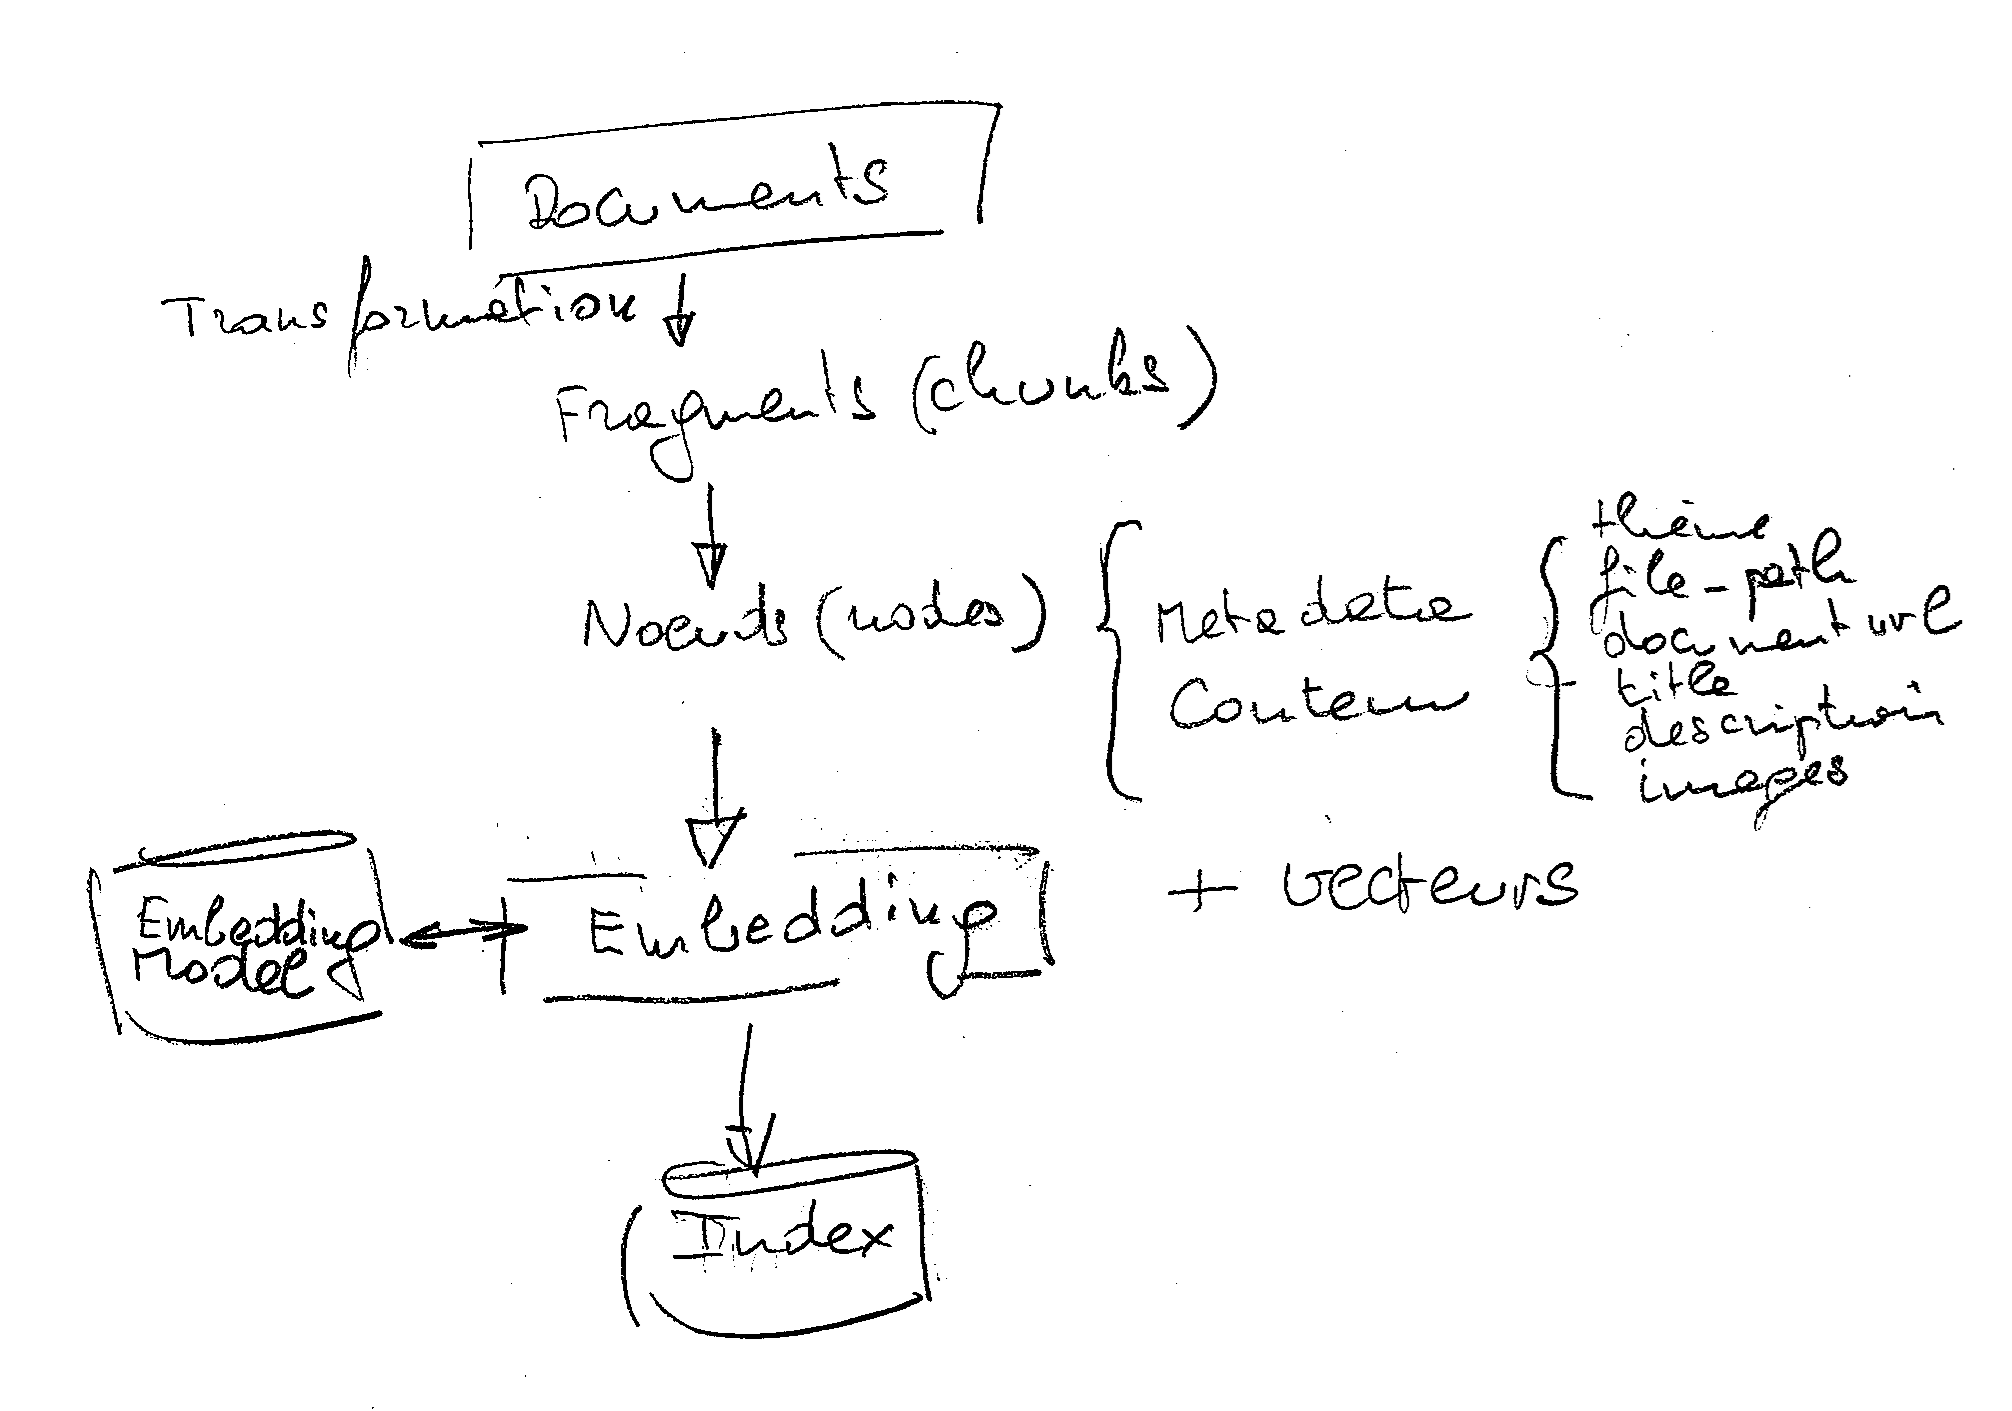 Documents
Transformation
Fragments (chunks)
Noeuds (nodes)
Metadata
Contenu
thème
file-path
document url
title
description
images
Embedding
Model
Embedding
+ vecteurs
Index